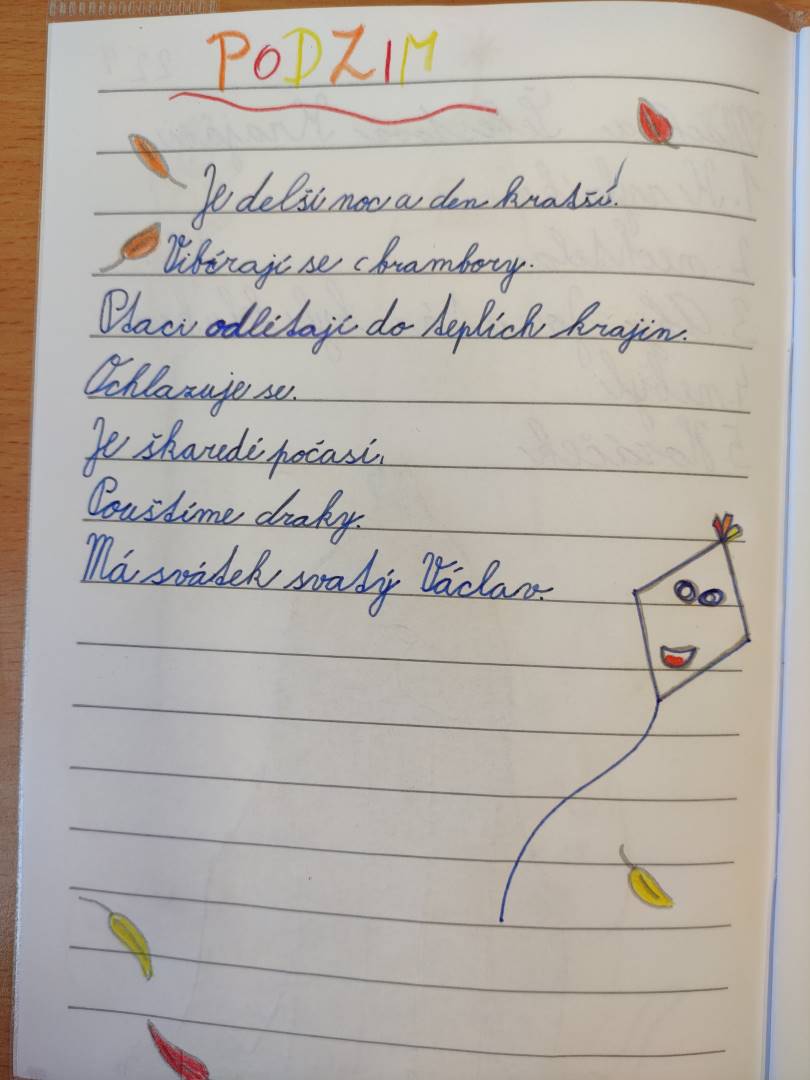 PODZIM
Je delší noc a den kratší.
Vibírají se brambory.
Ptaci odlétají do teplích krajin.
Ochlazuje se.
Je škaredé počasí.
Pouštíme draky.
Má svátek svatý Václav.